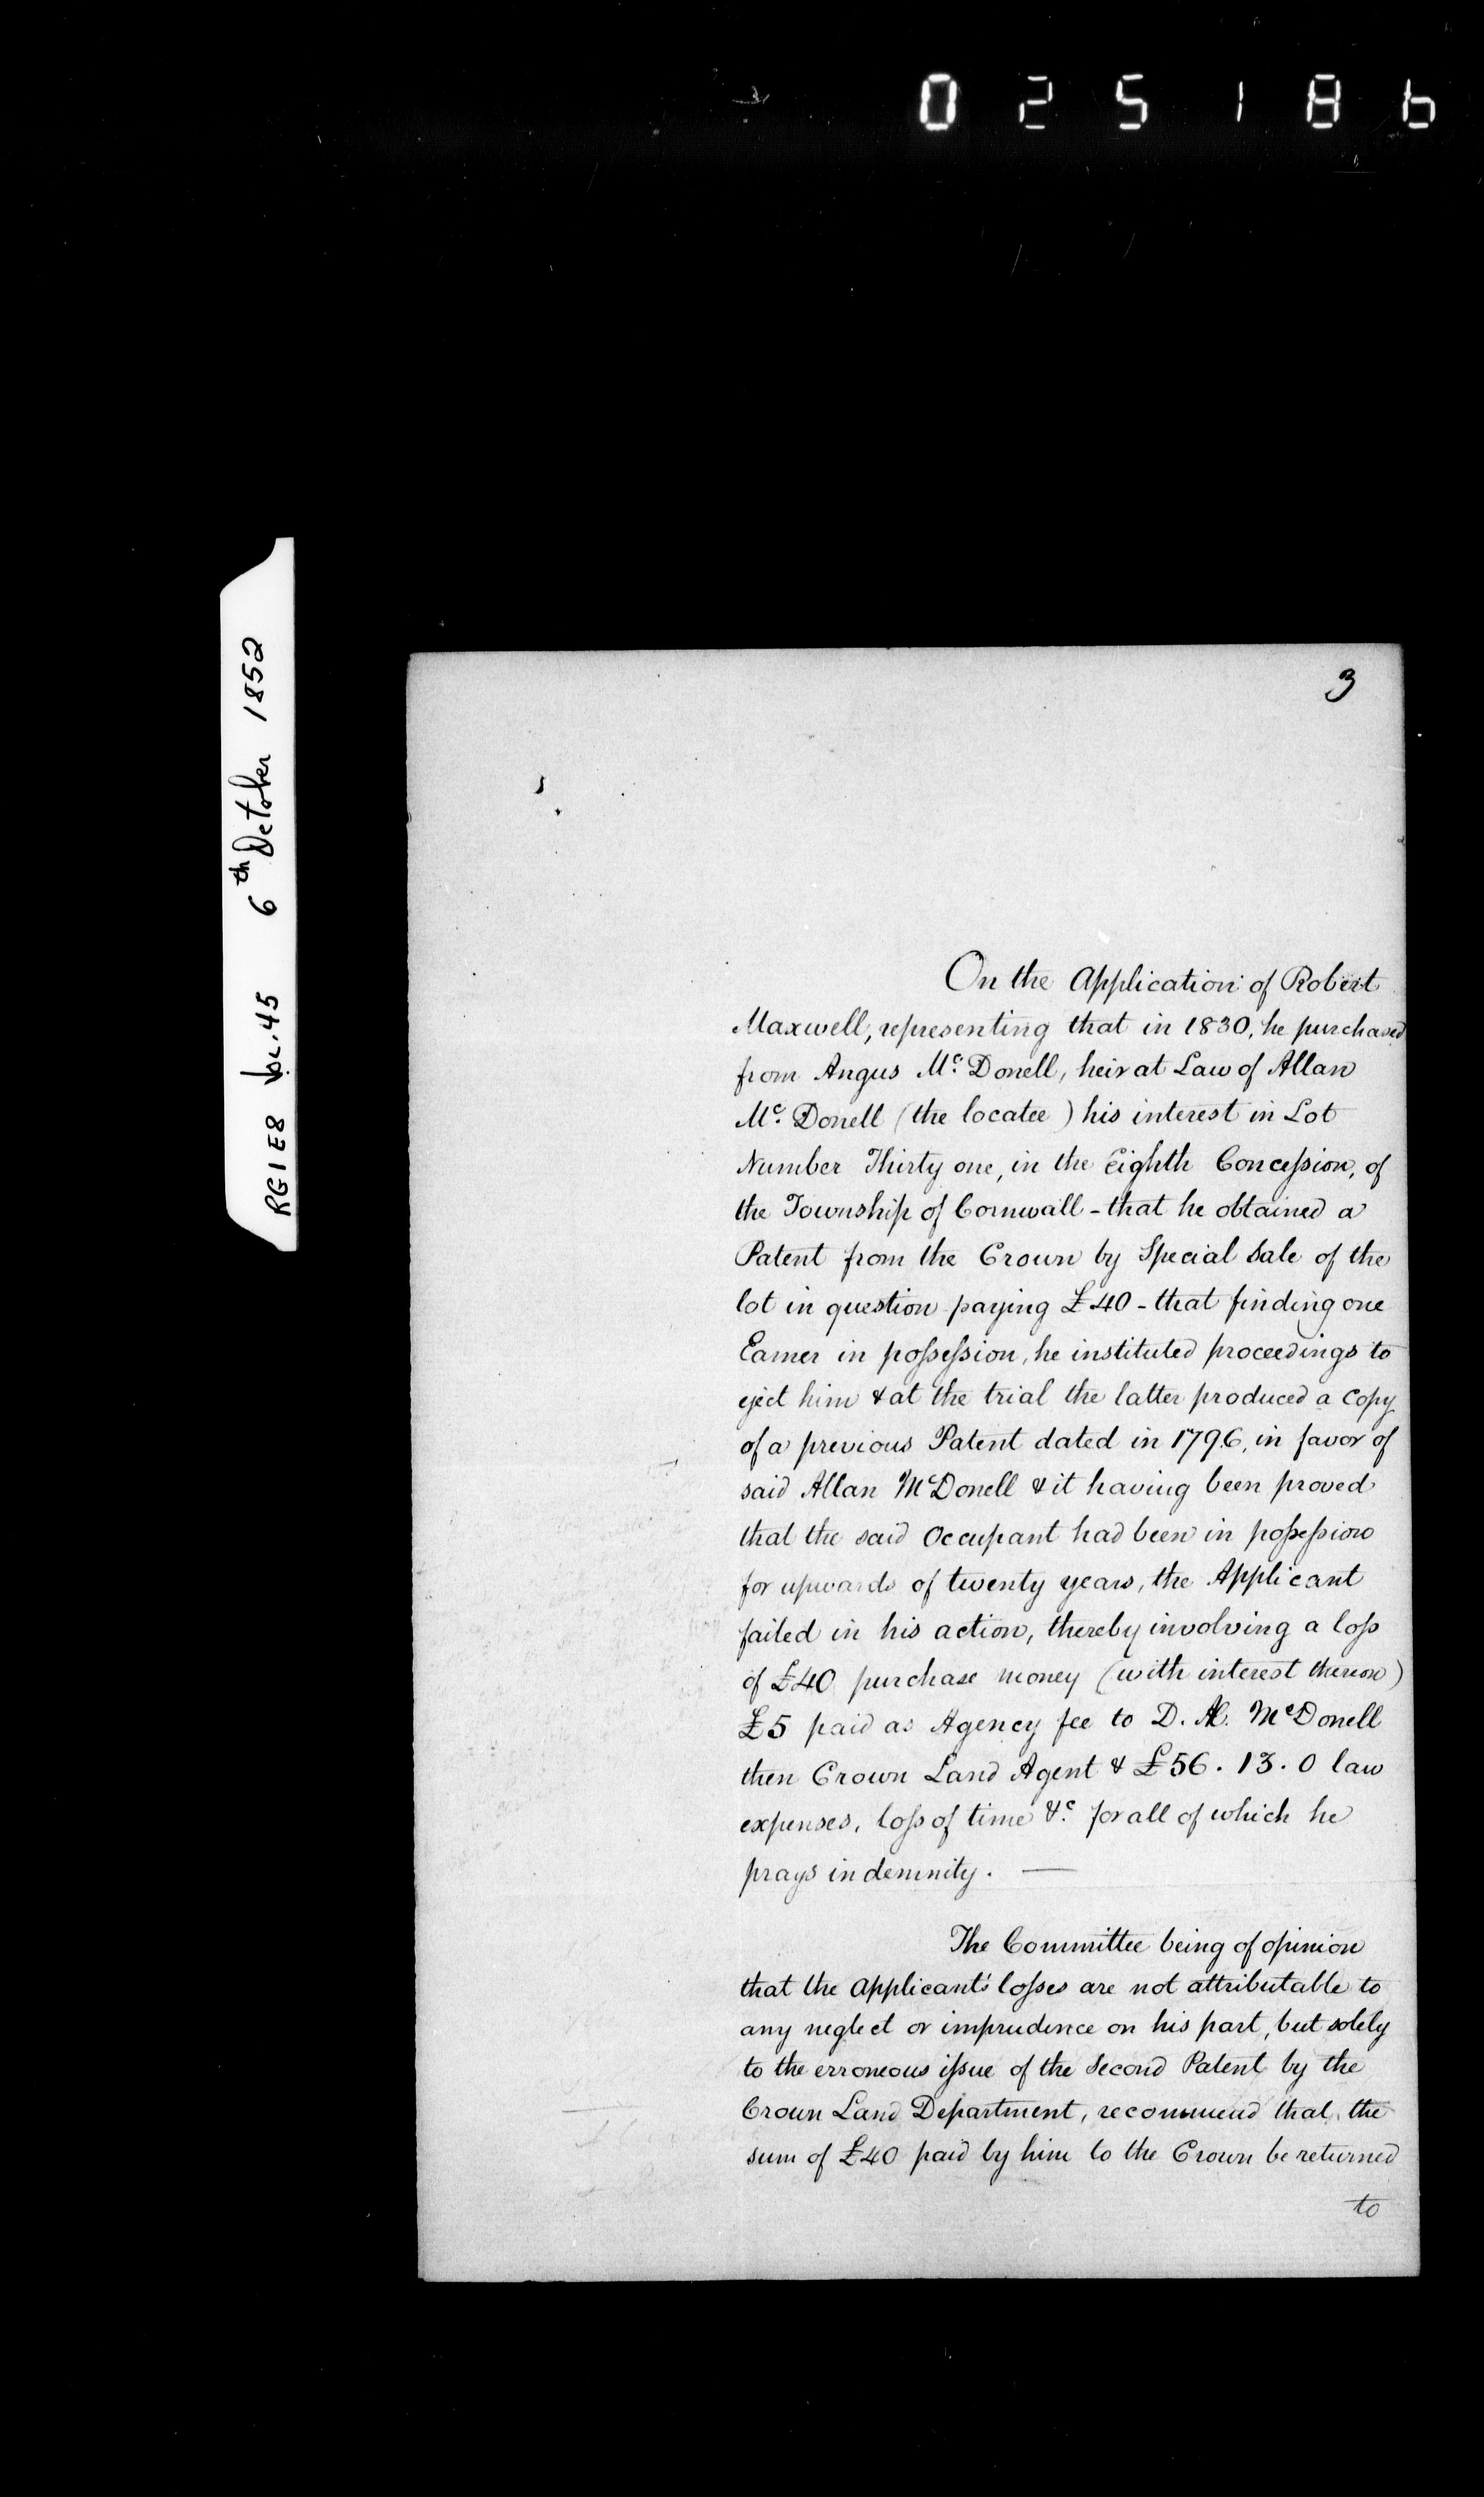 025186
RG1E8 Vol. 45 6th October 1852
3
On the Application of Robert
Maxwell, representing that in 1830, he purchased
from Angus Mc. Donell, heir at Law of Allan
Mc. Donell (the locatee) his interest in Lot
Number Thirty one, in the Eighth Concession, of
the Township of Cornwall - that he obtained a
Patent from the Crown by Special Sale of the
lot in question paying £40 - that finding one
Eamer in possession, he instituted proceedings to
eject him & at the trial the latter produced a Copy
of a previous Patent dated in 1796, in favor of
said Allan McDonell & it having been proved
that the said Occupant had been in possession
for upwards of twenty years, the Applicant
failed in his action, thereby involving a loss
of £40 purchase money (with interest thereon)
£5 paid as Agency fee to D. Æ. McDonell
then Crown Land Agent & £56. 13. 0 law
expenses, loss of time &c. for all of which he
prays indemnity. —
The Committee being of opinion
that the applicant's losses are not attributable to
any neglect or imprudence on his part, but solely
to the erroneous issue of the Second Patent by the
Crown Land Department, recommend that the
sum of £40 paid by him to the Crown be returned
to